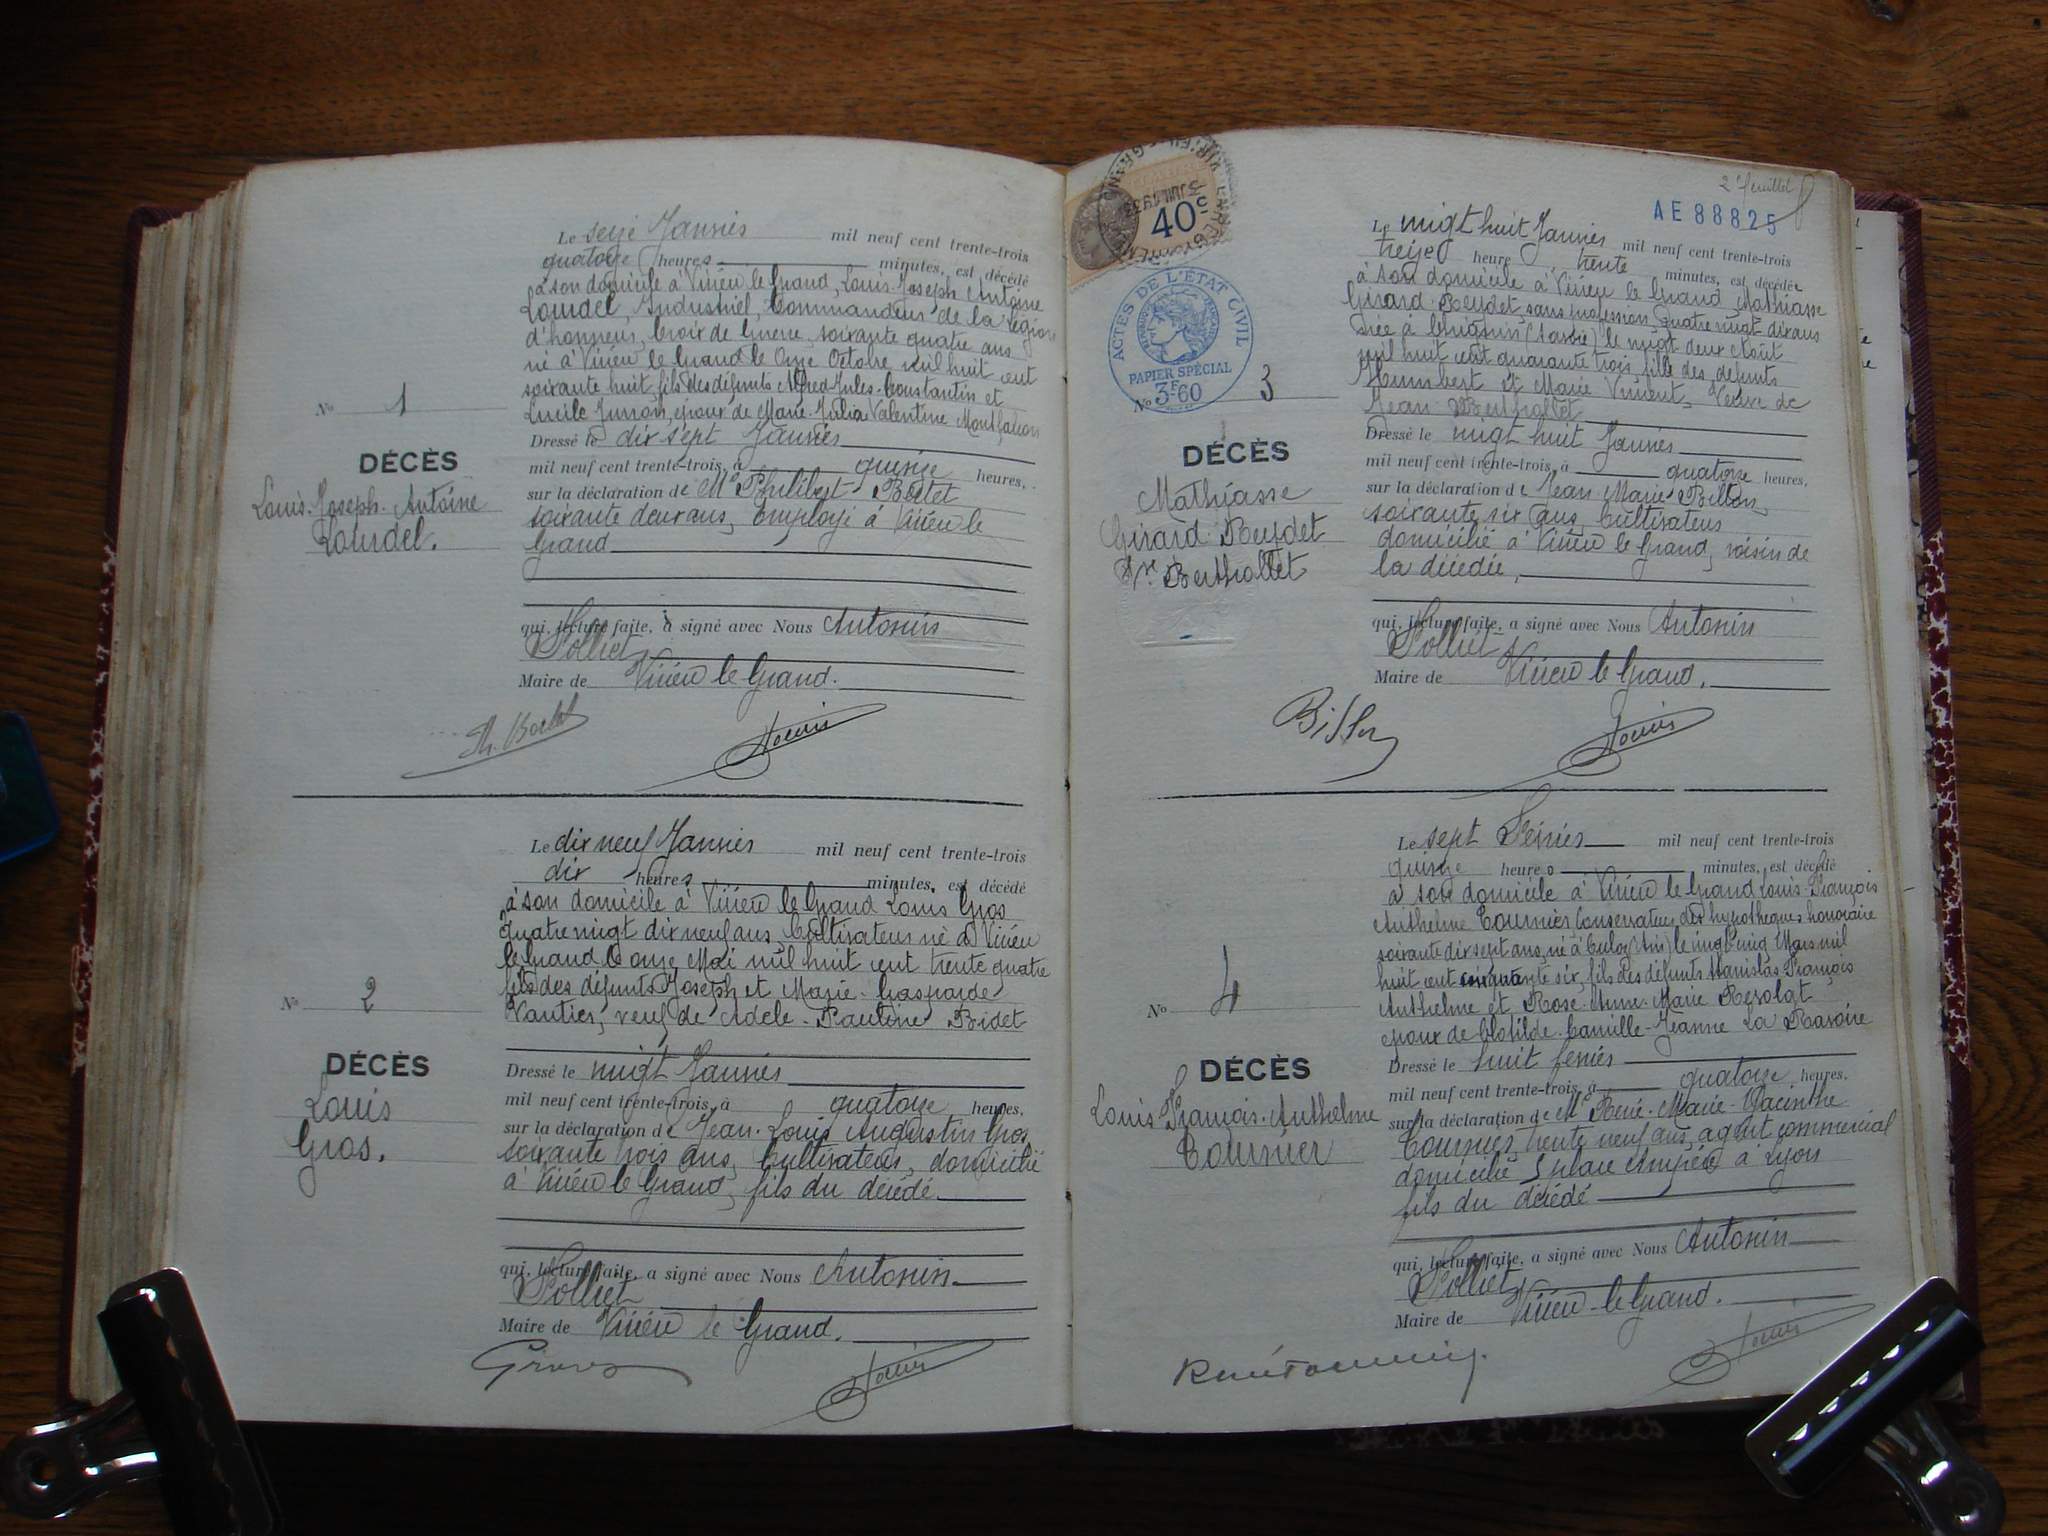 Le seize Janvier mil neuf cent trente-trois
quatorze heures minutes, est décédé
à son domicile à Virieu le Grand, Louis Joseph Antoine
Loudel, Industriel, Commandeur de la Légion
d'honneur, Croix de Guerre, soixante quatre ans
né à Virieu le Grand le Onze Octobre mil huit cent
soixante huit, fils des défunts Alfred Jules Constantin et
Lucile Junron, époux de Marie Julia Valentine Montfalcon
No 1
Dressé le dix sept Janvier
DÉCÈS
mil neuf cent trente-trois, à quinze heures,
Louis Joseph Antoine
Loudel.
sur la déclaration de Mr Philibert Bortet
soixante deux ans, Employé à Virieu le
Grand
qui, lecture faite, a signé avec Nous Antonin
Solliet
Maire de Virieu le Grand.
Ph. Bortet
Le dix neuf Janvier mil neuf cent trente-trois
dix heures minutes, est décédé
à son domicile à Virieu le Grand Louis Gros
quatre vingt dix neuf ans, Cultivateur né à Virieu
le Grand le onze Mai mil huit cent trente quatre
fils des défunts Joseph et Marie Gasparde
Vautier, veuf de Adèle Pauline Bidet
No 2
DÉCÈS
Louis
Gros.
Dressé le vingt Janvier
mil neuf cent trente-trois, à quatorze heures,
sur la déclaration de Jean Louis Augustin Gros,
soixante trois ans, Cultivateur, domicilié
à Virieu le Grand, fils du décédé
qui, lecture faite, a signé avec Nous Antonin
Solliet
Maire de Virieu le Grand.
2e feuillet
AE 88825
VIRIEU-LE-GRAND
40c
ACTES DE L'ÉTAT CIVIL
PAPIER SPÉCIAL
3F60
Le vingt huit Janvier mil neuf cent trente-trois
treize heure trente minutes, est décédée
à son domicile à Virieu le Grand Mathiasse
Girard Reydet sans profession, quatre vingt dix ans
née à Chignin (Savoie) le vingt deux Août
mil huit cent quarante trois, fille des défunts
Humbert et Marie Vincent, Veuve de
Jean Berthollet
No 3
DÉCÈS
Mathiasse
Girard Reydet
Vve Berthollet
Dressé le vingt huit Janvier
mil neuf cent trente-trois, à quatorze heures,
sur la déclaration de Jean Marie Billon,
soixante six ans, Cultivateur
domicilié à Virieu le Grand, voisin de
la décédée,
qui, lecture faite, a signé avec Nous Antonin
Solliet
Maire de Virieu le Grand.
Billon
Le sept Février mil neuf cent trente-trois
quinze heures minutes, est décédé
à son domicile à Virieu le Grand Louis François
Anthelme Tournier Conservateur des hypothèques honoraire
soixante dix sept ans, né à Culoz (Ain) le vingt cinq Mars mil
huit cent cinquante six, fils des défunts Stanislas François
Anthelme et Rose Anne Marie Reyolat
époux de Clotilde Camille Jeanne La Ravoire
No 4
DÉCÈS
Louis François Anthelme
Tournier
Dressé le huit février
mil neuf cent trente-trois, à quatorze heures,
sur la déclaration de Mr René Marie Hyacinthe
Tournier, trente neuf ans, agent commercial
domicilié 5 place Ampère à Lyon
fils du décédé
qui, lecture faite, a signé avec Nous Antonin
Solliet
Maire de Virieu le Grand.